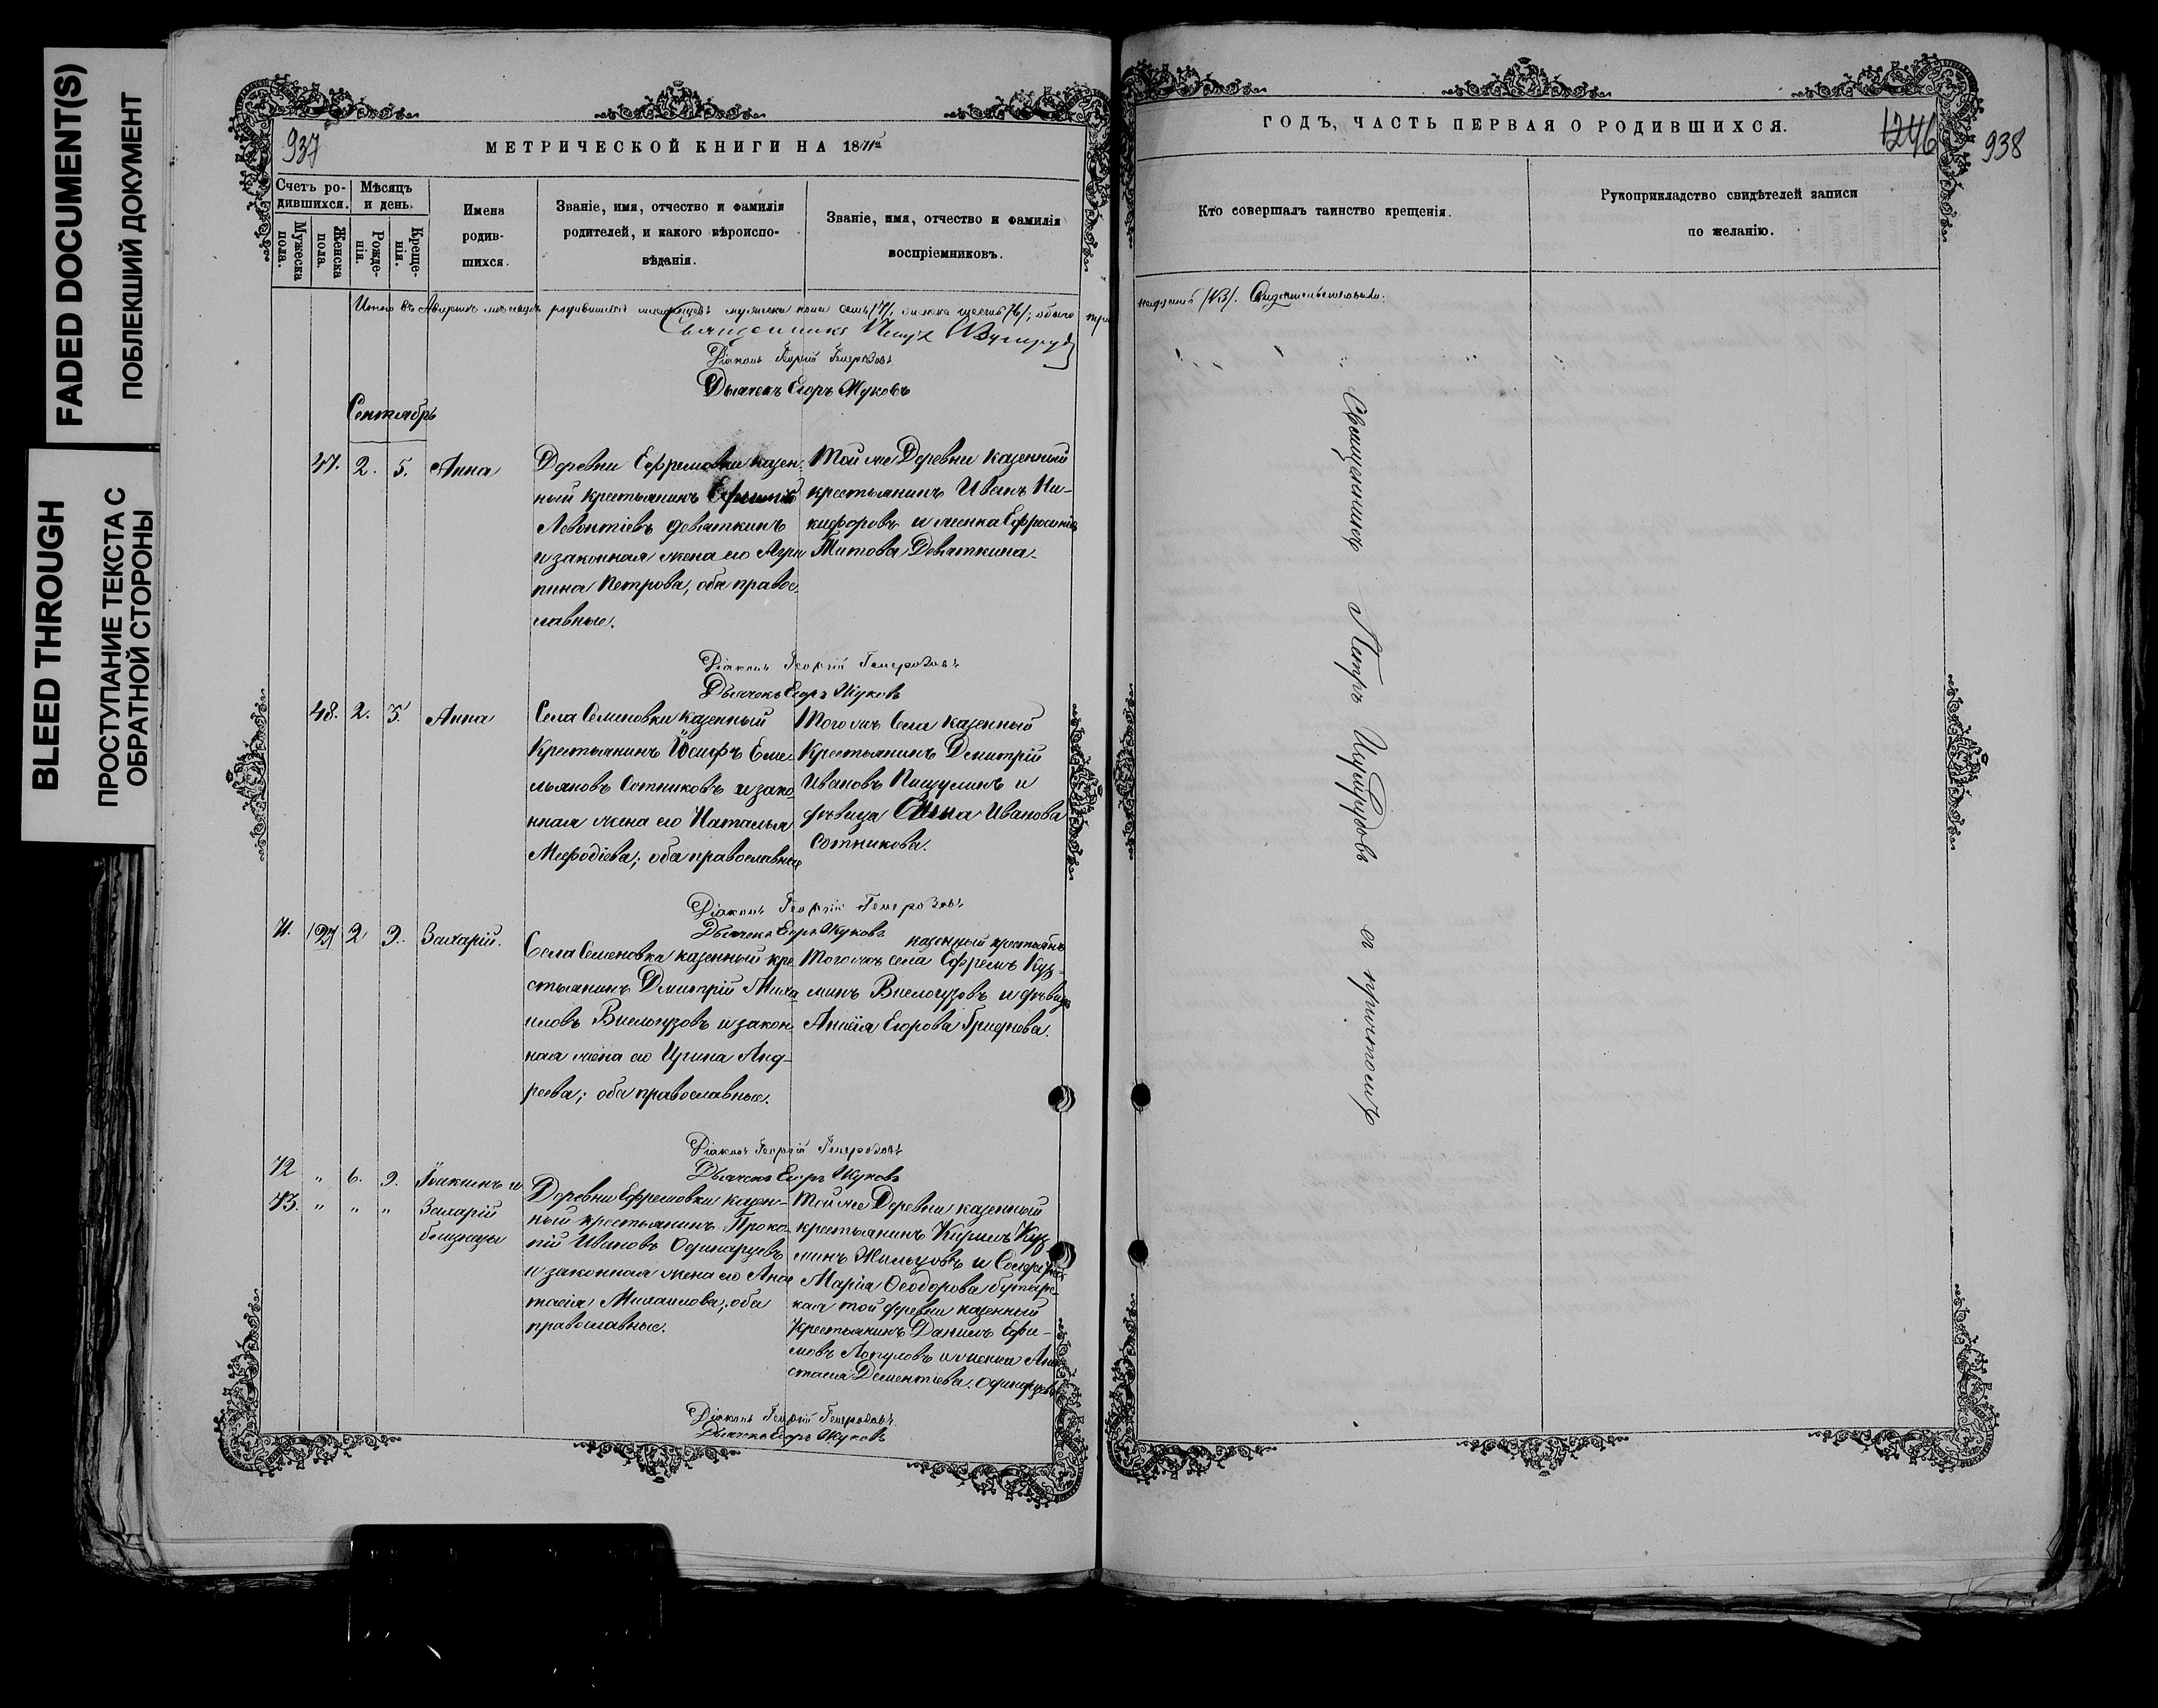 FADED DOCUMENT(S)
ПОБЛЕКШИЙ ДОКУМЕНТ
BLEED THROUGH
ПРОСТУПАНИЕ ТЕКСТА С
ОБРАТНОЙ СТОРОНЫ
937
МЕТРИЧЕСКОЙ КНИГИ НА 1871
Счетъ ро-
дившихся.
Мѣсяцъ
и день.
Мужеска
пола.
Женска
пола.
Рожде-
нія.
Креще-
нія.
Имена
родив-
шихся.
Званіе, имя, отчество и фамилія
родителей, и какого вѣроиспо-
вѣданія.
Званіе, имя, отчество и фамилія
воспріемниковъ.
Итого въ Августѣ мѣсяцѣ родившихся мужеска пола семь /7/, женска шесть /6/; обоего
Священникъ Петръ
Діаконъ Георгій
Дьячекъ Егоръ Жуковъ
Сентябрь
47. 2. 5. Анна
Деревни Ефремовки казен-
ный крестьянинъ
Леонтіевъ Девяткинъ
и законная жена его Агри
пина Петрова, оба право
славные.
Той же Деревни казенный
крестьянинъ Иванъ Ни-
кифоровъ и женка Ефросинія
Титова Девяткина
Діаконъ Георгій
Дьячекъ Егоръ Жуковъ
48. 2. 5. Анна
Села Семеновки казенный
Крестьянинъ Іосифъ Еме-
льяновъ Сотниковъ и зако
нная жена его Наталья
Меѳодіева; оба православные
Того жъ Села казенный
Крестьянинъ Дмитрій
Ивановъ Пищулинъ и
дѣвица Анна Иванова
Сотникова.
Діаконъ Георгій
Дьячекъ Егоръ Жуковъ
2 9. Захарій.
Села Семеновка казенный кре
стьянинъ Дмитрій Миха
иловъ Вислогузовъ и закон
ная жена его Ирина Анд-
реева; оба православные.
казенный крестьянинъ
Того жъ села Ефремъ Куз-
минъ Вислогузовъ и дѣвица
Анисія Егорова Гриднева.
Діаконъ Георгій
Дьячекъ Егоръ Жуковъ
" 6. 9. Іоакимъ и
" " " Захарій
близнецы
Деревни Ефремовки казен-
ный крестьянинъ Проко
пій Ивановъ Одинарцевъ
и законная жена его Анас
тасія Михаилова; оба
православные.
Той же Деревни казенный
крестьянинъ Кирилъ Куз
минъ Жильцовъ и
Марія Ѳеодорова
кая той деревни казенный
Крестьянинъ Данилъ Ефи-
мовъ и женка Ана
стасія Дементіева
Діаконъ Георгій
Дьячекъ Егоръ Жуковъ
ГОДЪ, ЧАСТЬ ПЕРВАЯ О РОДИВШИХСЯ.
1246
938
Кто совершалъ таинство крещенія.
Рукоприкладство свидѣтелей записи
по желанію.
/13/. Свидѣтельствовали:
Священникъ Петръ съ причтомъ